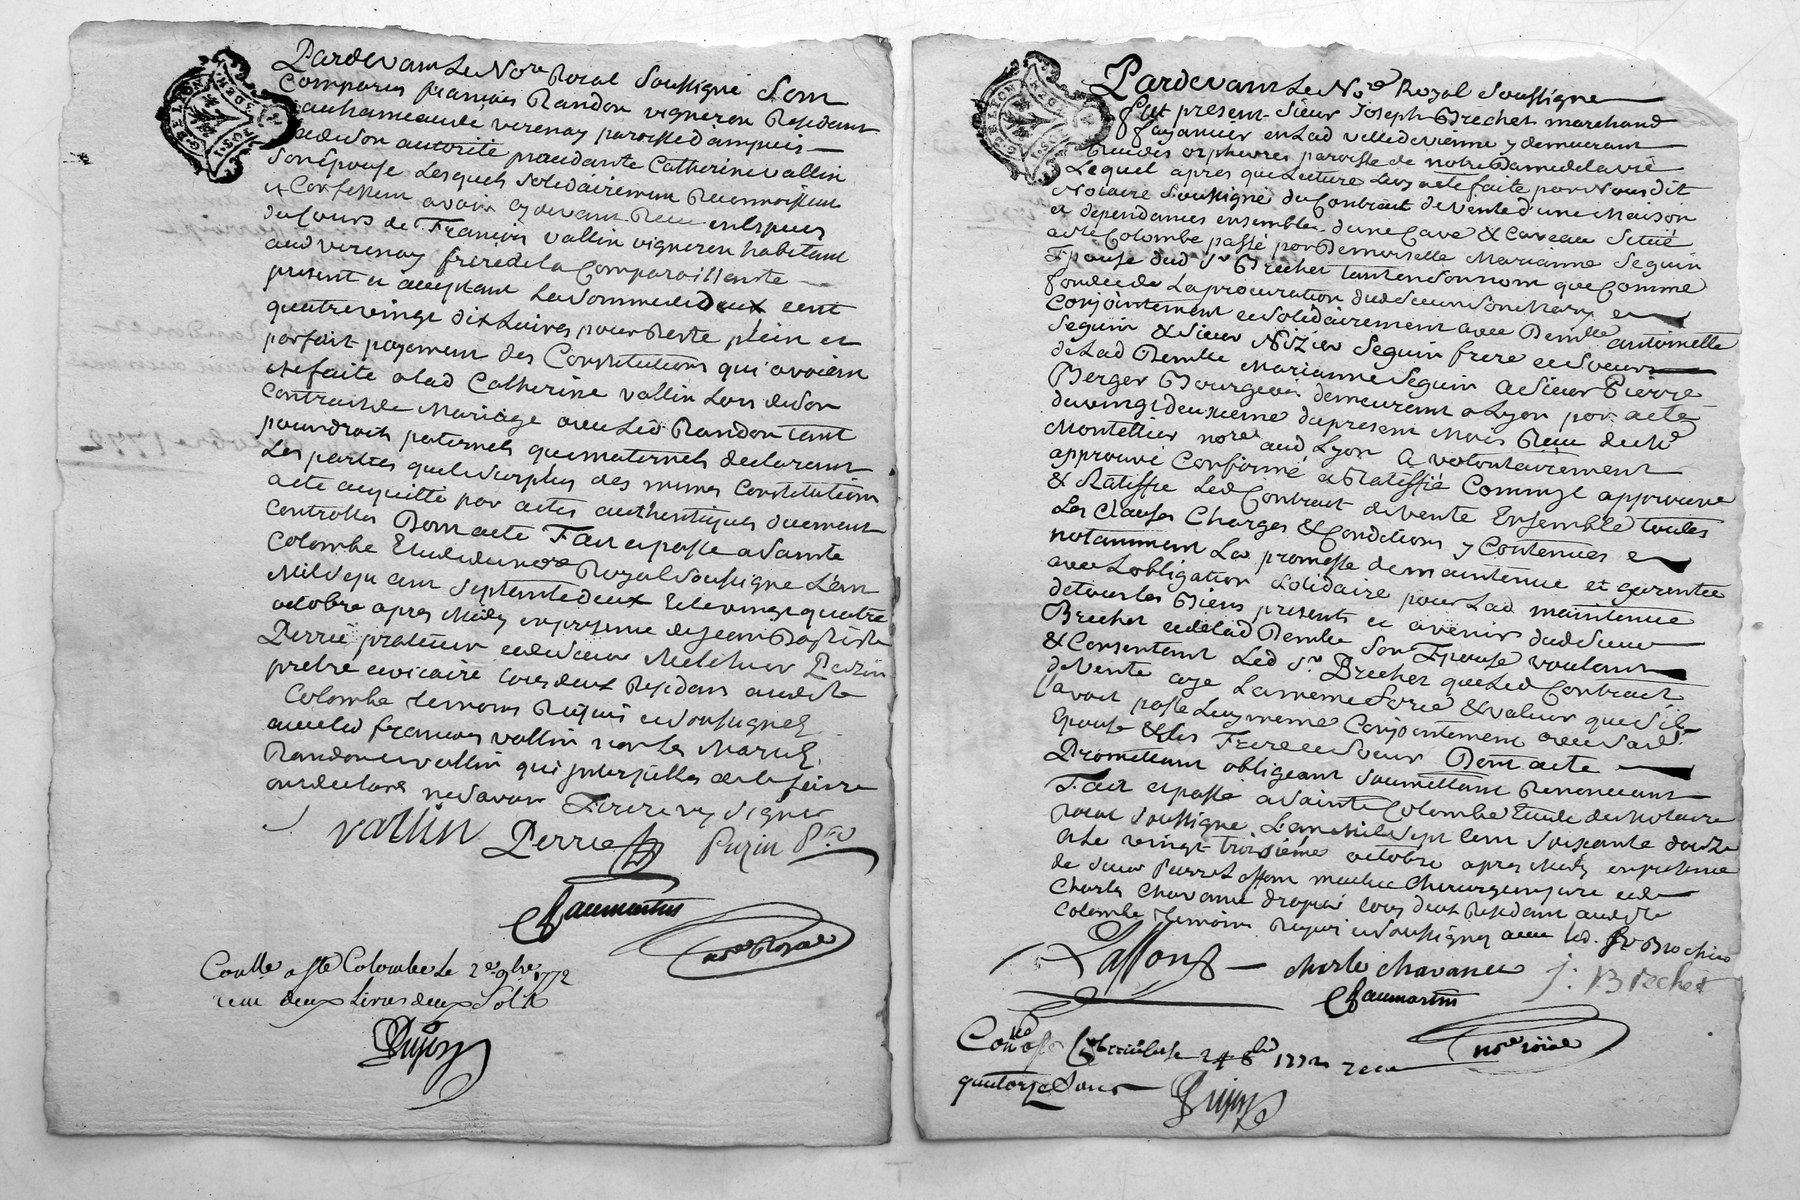 Pardevant Le No.re Royal Soussigné Sont
Comparus françois Randon vigneron Residant
au hameau de verenay paroisse d'ampuis
son autorité procedante Catherine vallin
son Epouse Lesquels solidairement Reconnoissent
et Confessent avoir cy devant Receu en Especes
du Cours de François vallin vigneron habitant
aud verenay frere de la Comparaissante
present et acceptant La somme de Deux cent
quatrevingt dix Livres pour Reste plein et
parfait payement des Constitutions qui avoient
ete faite a lad Catherine vallin Lors de son
Contrat de Mariage avec Led Randon tant
pour droits paternels que maternels declarant
Les parties que le surplus des mêmes Constitutions
a ete acquitté par actes authentiques duement
Controllés Dont acte Fait et passé a Sainte
Colombe Etude du no.re Royal soussigné L'an
Mil Sept cent septante deux Et le vingt quatre
octobre apres Midy en presence de Jean Baptiste
Perrié praticien et de sieur Melchior Puzin
prêtre et vicaire tous deux Residans aud Ste
Colombe temoins Requis et soussignés
avec led françois vallin non les Mariés
Randon et vallin qui interpellés de le faire
ont declaré ne savoir Ecrire ny signer
vallin Perrié Puzin Ptre
Chaumartin
no.re Royal
Con.llé a Ste Colombe le 2e 9bre 1772
receu deux Livres deux Sols
Dujon
Pardevant Le No.re Royal Soussigné
fut present Sieur Joseph Brechet marchand
fayancier en Lad ville de vienne y demeurant
Rue des orphevres paroisse de notre Dame de la vie
Lequel apres que Lecture Luy a ete faite par Nous dit
Notaire Soussigné du Contrat de Vente d'une Maison
et dependances ensemble d'une Cave & Caveau Situé
a Ste Colombe passé par Demoiselle Marianne Seguin
Epouse dud Sr Brechet tant en son nom que Comme
fondée de La procuration dud Sieur son Mary et
Conjointement et solidairement avec Demlle antoinette
Seguin & Sieur Nizier Seguin frere et soeur
de Lad Demlle Marianne Seguin a Sieur Pierre
Berger Bourgeois demeurant a Lyon par acte
du vingt deuxieme du present Mois Receu de Me
Montellier no.re aud Lyon a volontairement
approuvé Confirmé & Ratiffié Comme il approuve
& Ratiffie Led Contrat de Vente Ensemble toutes
Les Clauses Charges & Conditions y Contenues et
notamment La promesse de maintenue et garentie
avec L'obligation Solidaire pour Lad maintenue
de tous les Biens presents et avenir dud sieur
Brechet et de Lad Demlle Son Epouse voulant
& Consentant Led Sr Brechet que Led Contrat
de Vente aye La meme Force & valeur que s'il
l'avoit passé Luy meme Conjointement avec Sad
Epouse & Les Frere et soeur Dont acte
Promettant obligeant Soumettant Renonceant
Fait et passé a Sainte Colombe Etude du Notaire
Royal Soussigné L'an Mil Sept Cent Soixante douze
& Le vingt troisième octobre apres Midy en presence
de Sieur Pierre Laffont maitre Chirurgien juré et de
Charles Chavance drapier tous deux Residant aud Ste
Colombe temoins Requis et soussignés avec led. Sr Brechet
Laffont charle chavance J. Brechet
Chaumartin
no.re roial
Con.lé a Ste Colombe le 24 8bre 1772 receu
quatorze Sous
Dujon